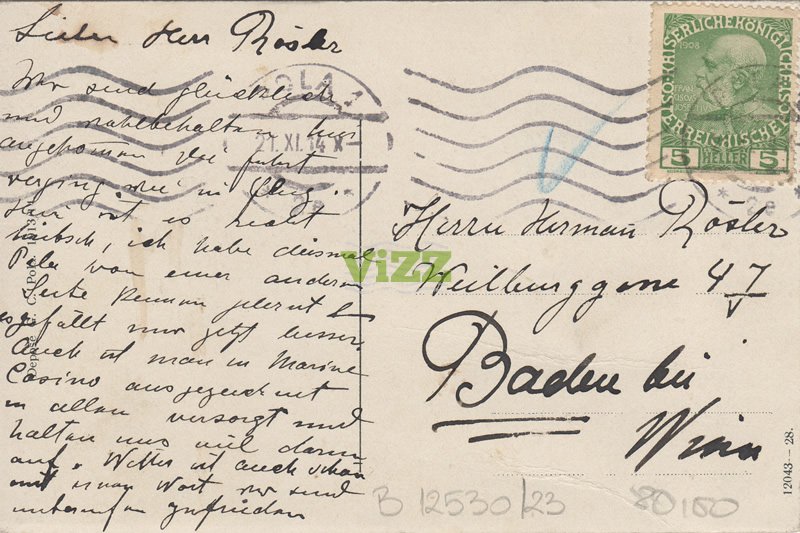 Lieber Herr Rösler
Wir sind glücklich
und wohlbehalten hier
angekommen die Fahrt
verging wie im Flug.
Hier ist es recht
hübsch, ich habe diesmal
Pola von einer anderen
Seite kennen gelernt &
es gefällt mir jetzt besser.
Auch ist man im Marine
Casino ausgezeichnet
in allem versorgt und
halten uns viel darin
auf. Wetter ist auch schön
mit einem Wort wir sind
unberufen zufrieden
POLA 1
21.XI.14 X-
1908
5 HELLER 5
Herrn Herman Rösler
Weilburggasse 47/V
Baden bei
Wien
ViZZ
12043-28.
B 12530/23
80,100